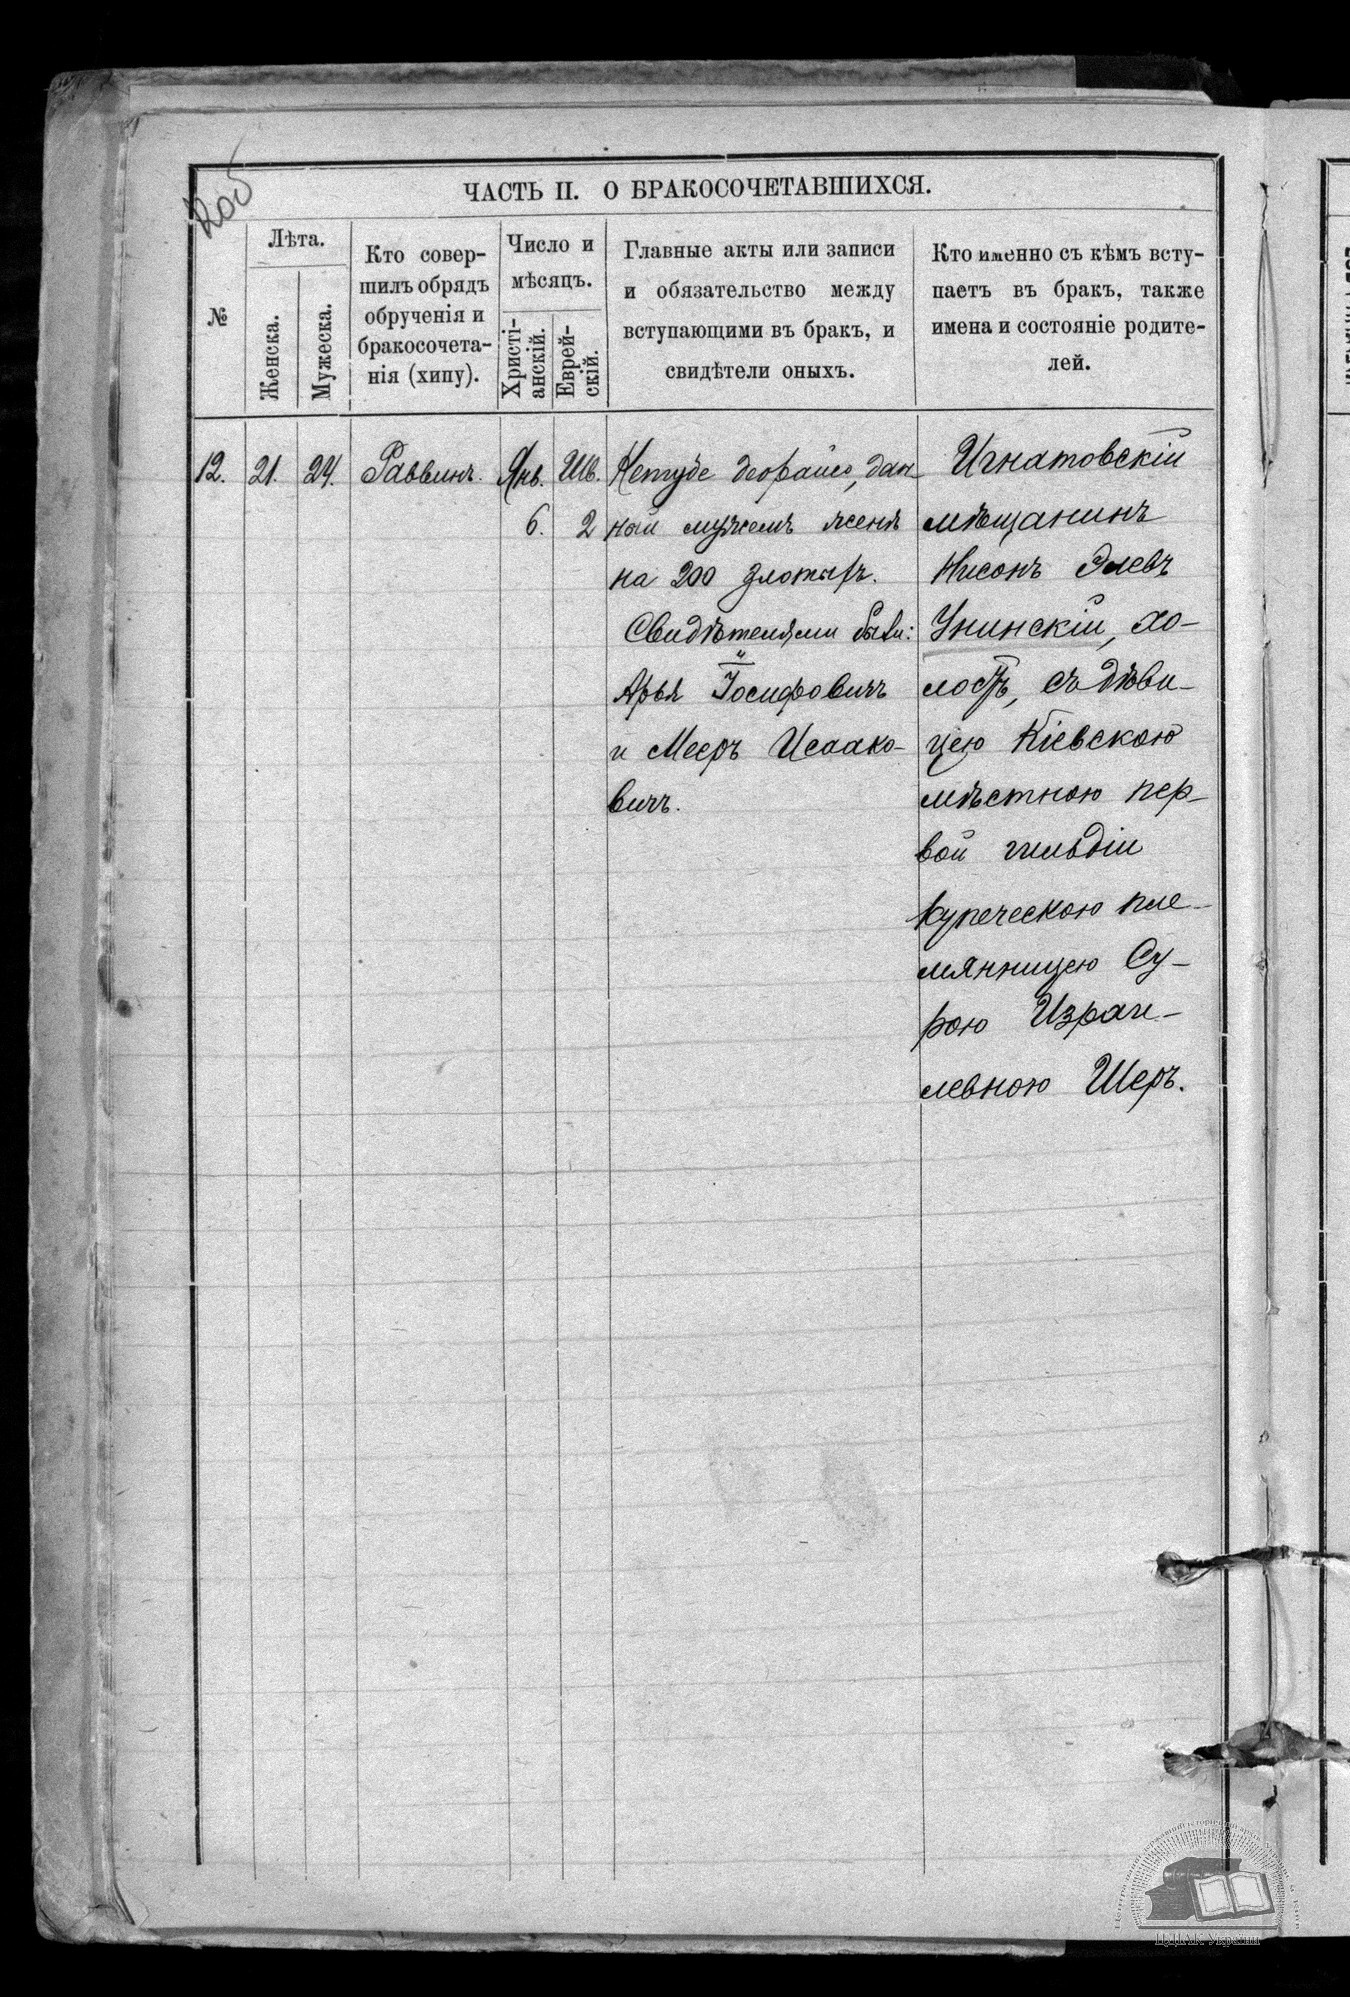 ЧАСТЬ II. О БРАКОСОЧЕТАВШИХСЯ.
№
Лѣта.
Женска.
Мужеска.
Кто совер-
шилъ обрядъ
обрученія и
бракосочета-
нія (хипу).
Число и
мѣсяцъ.
Христі-
анскій.
Еврей-
скій.
Главные акты или записи
и обязательство между
вступающими въ бракъ, и
свидѣтели оныхъ.
Кто именно съ кѣмъ всту-
паетъ въ бракъ, также
имена и состояніе родите-
лей.
12.
21.
24.
Раввинъ.
Янв.
6.
Шв.
2
Кетубе деорайсо, дан-
ный мужемъ женѣ
на 200 злотыхъ.
Свидѣтелями были:
Арья Іосифовичъ
и Мееръ Исаако-
вичъ.
Игнатовскій
мѣщанинъ
Нисонъ Элевъ
Унинскій, хо-
лостъ, съ дѣви-
цею Кіевскою
мѣстною пер-
вой гильдіи
купеческою пле-
мянницею Су-
рою Израи-
левною Шеръ.
ЦДІАК України